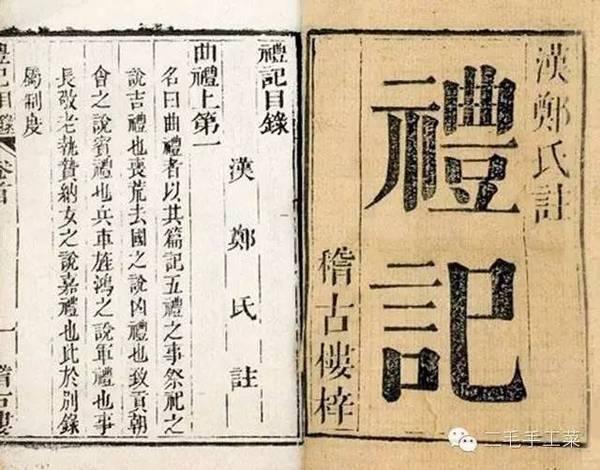 漢鄭氏註
禮記
稽古樓梓
禮記目錄
漢鄭氏註
曲禮上第一
名曰曲禮者以其篇記五禮之事祭祀之
說吉禮也喪荒去國之說凶禮也致貢朝
會之說賓禮也兵車旌鴻之說軍禮也事
長敬老執贄納女之說嘉禮也此於別錄
屬制度
禮記目錄
卷首
一
稽古樓
二毛手工菜